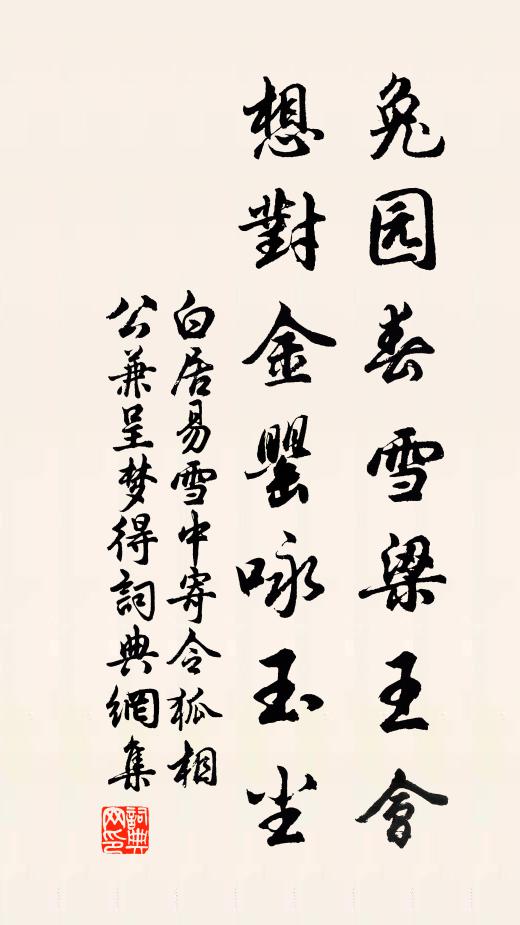 兔园春雪梁王會
想對金罌咏玉尘
白居易雪中寄令狐相
公兼呈梦得詞典網集
詞典
网印